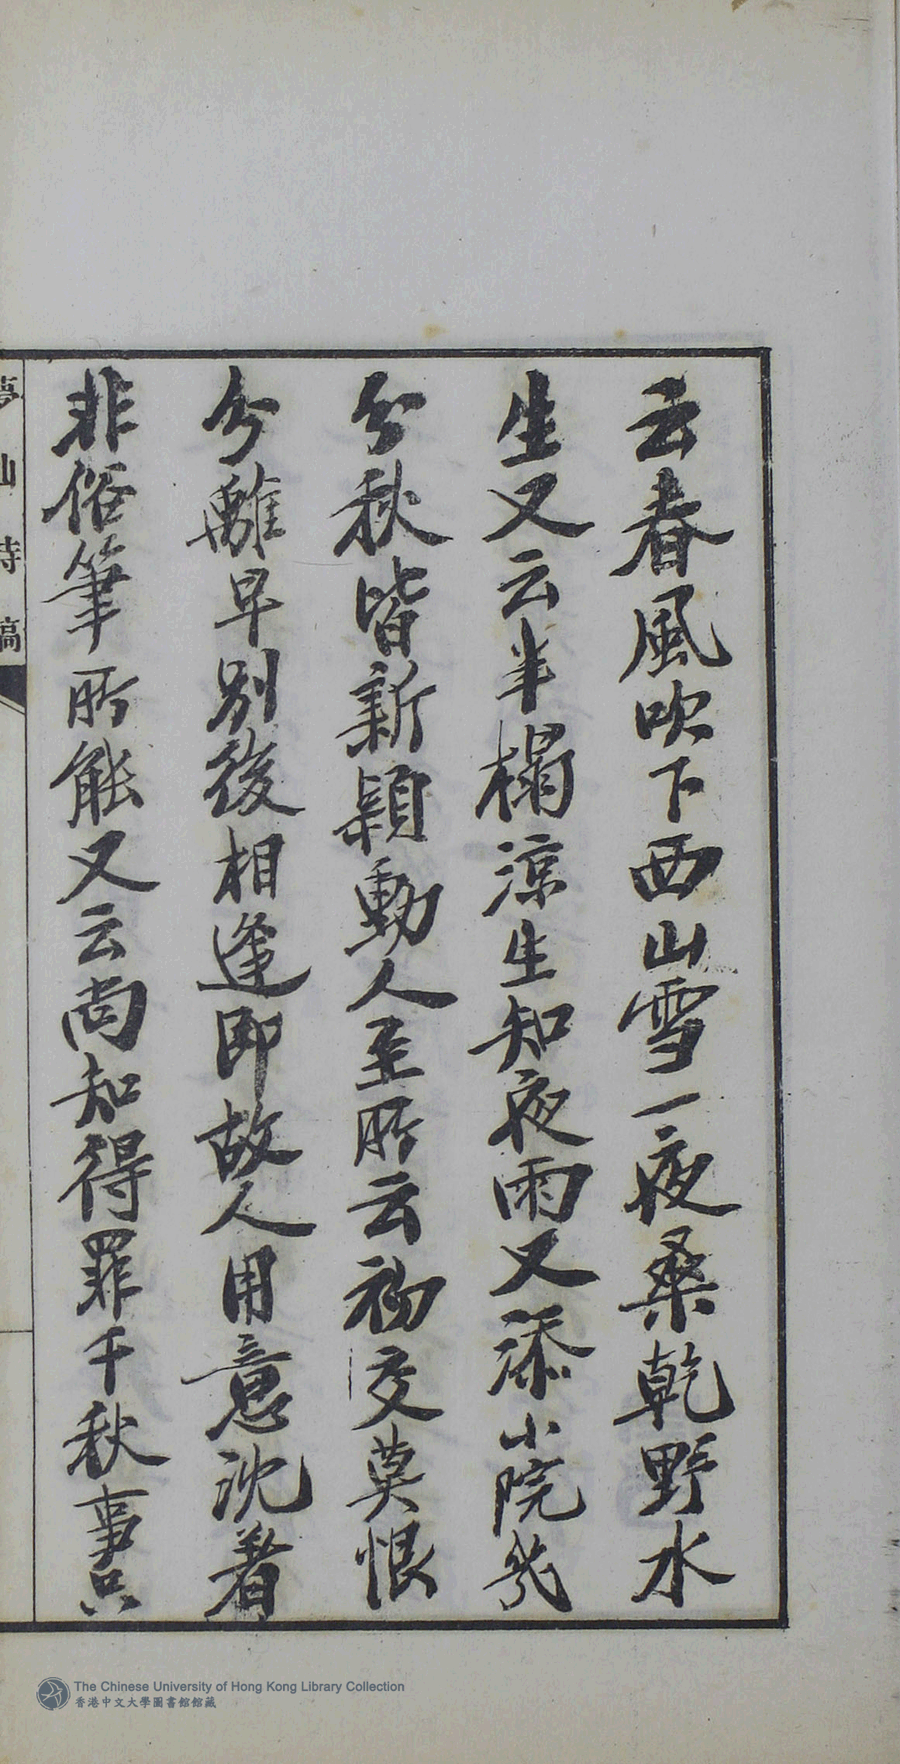 云春風吹下西山雪一夜桑乾野水
生又云半榻涼生知夜雨又添小院幾
分秋皆新穎動人至所云初交莫恨
分離早別後相逢即故人用意沈著
非俗筆所能又云尚知得罪千秋事只
夢仙詩稿
The Chinese University of Hong Kong Library Collection
香港中文大學圖書館館藏